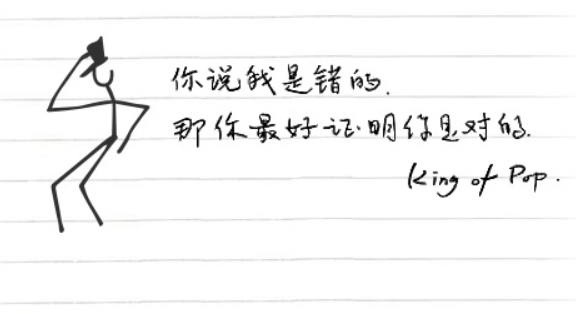 你说我是错的.
那你最好证明你是对的.
King of Pop.